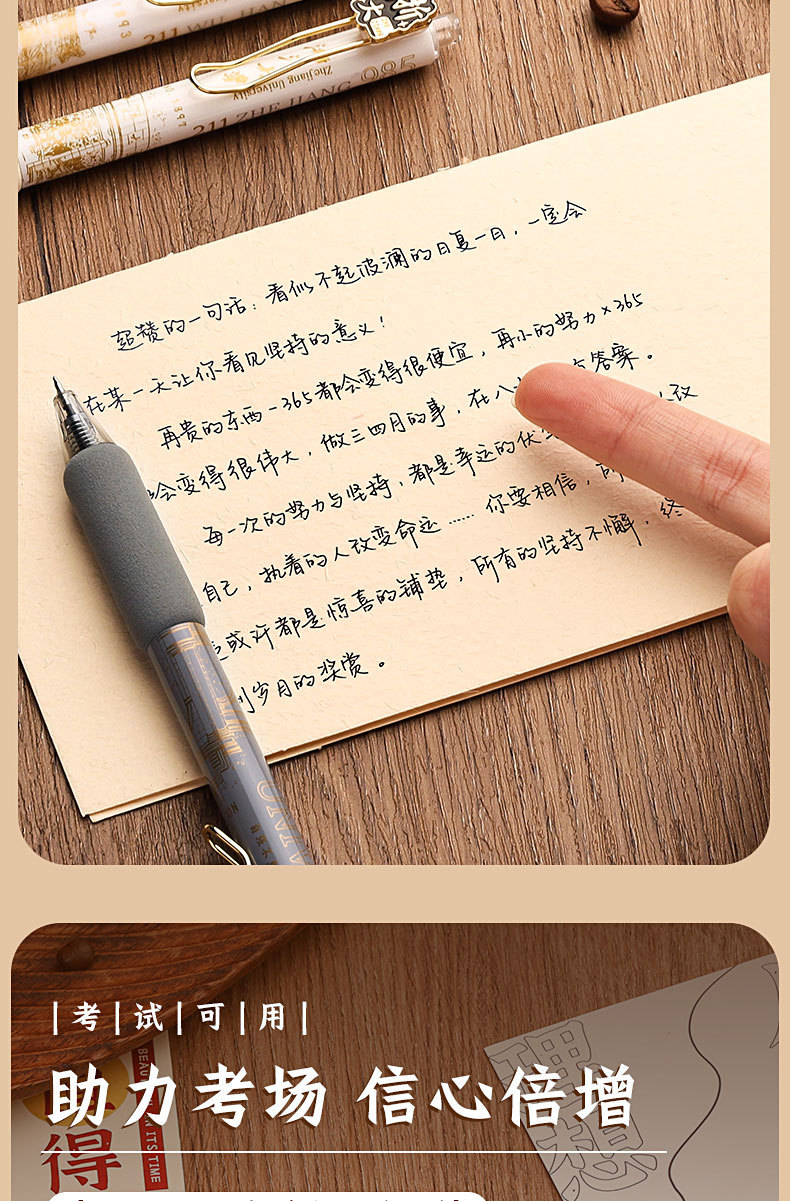 211 WU HAN
1893
浙大
Zhejiang University
211 ZHE JIANG 985
1897
超赞的一句话：看似不起波澜的日复一日，一定会
在某一天让你看见坚持的意义！
再贵的东西-365都会变得很便宜，再小的努力×365
会变得很伟大，做三四月的事，在八 有答案。
每一次的努力与坚持，都是幸运的伏 改
自己，执着的人改变命运……你要相信，所
或许都是惊喜的铺垫，所有的坚持不懈，终
到岁月的奖赏。
考试可用
助力考场 信心倍增
得
ITS TIME
理想